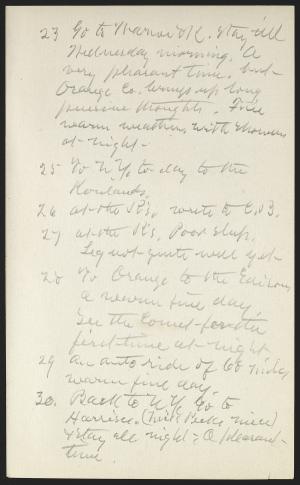 23 Go to Warner Ok. Stay till
Wednesday morning. A
very pleasant time. but
Orange Co. brings up long
pensive thoughts. Fine
warm weather with showers
at night.
25 To N.Y. to-day to the
Rowlands.
26 at the R's, write to C.B.
27 at the R's. Poor sleep.
Leg not quite well yet.
28 To Orange to the Edisons
a warm fine day.
See the Comet for the
first time at night
29 an auto ride of 60 miles
warm fine day.
30. Back to N.Y. Go to
Harrison. (Miss Beck's niece)
& stay all night. A pleasant
time.